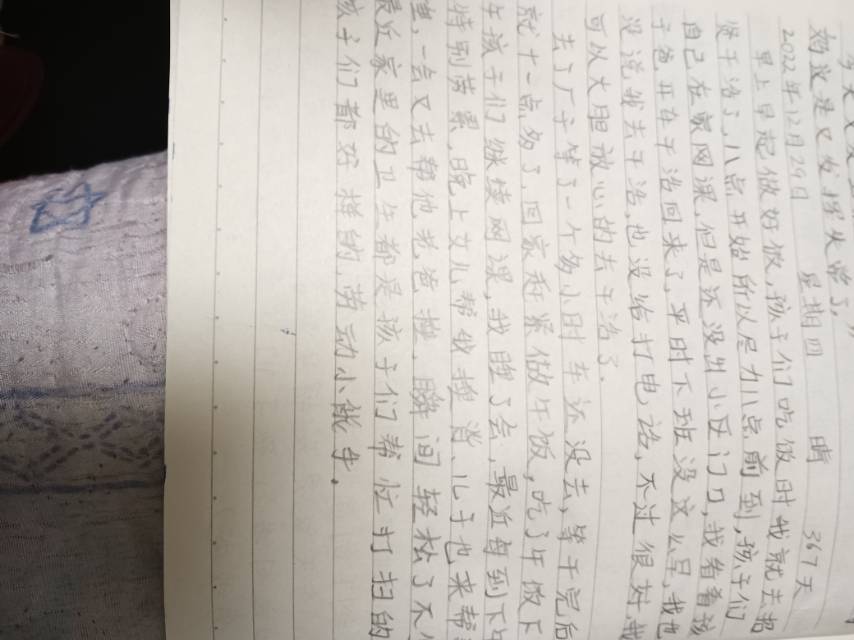 今天又发
妈这是又发绺失常了。
2022年12月29日 星期四 晴 367天
早上早起做好饭,孩子们吃饭时我就去把
货干活了,八点开始所以尽力八点前到,孩子们
自己在家网课,但是还没出小区门口,我看着孩
子爸开车干活回来了,平时下班没这么早,我也
没说我去干活,也没给打电话,不过很好我
可以大胆放心的去干活了。
去了厂子等了一个多小时车还没去,等干完后
就十一点多了,回家赶紧做午饭,吃了午饭下
午孩子们继续网课,我睡了会,最近每到下午
特别劳累,晚上女儿帮我捶背,儿子也来帮
捶,一会又去帮他老爸捶,瞬间轻松了不少
最近家里的卫生都是孩子们帮忙打扫的
孩子们都好样的,劳动小能手。